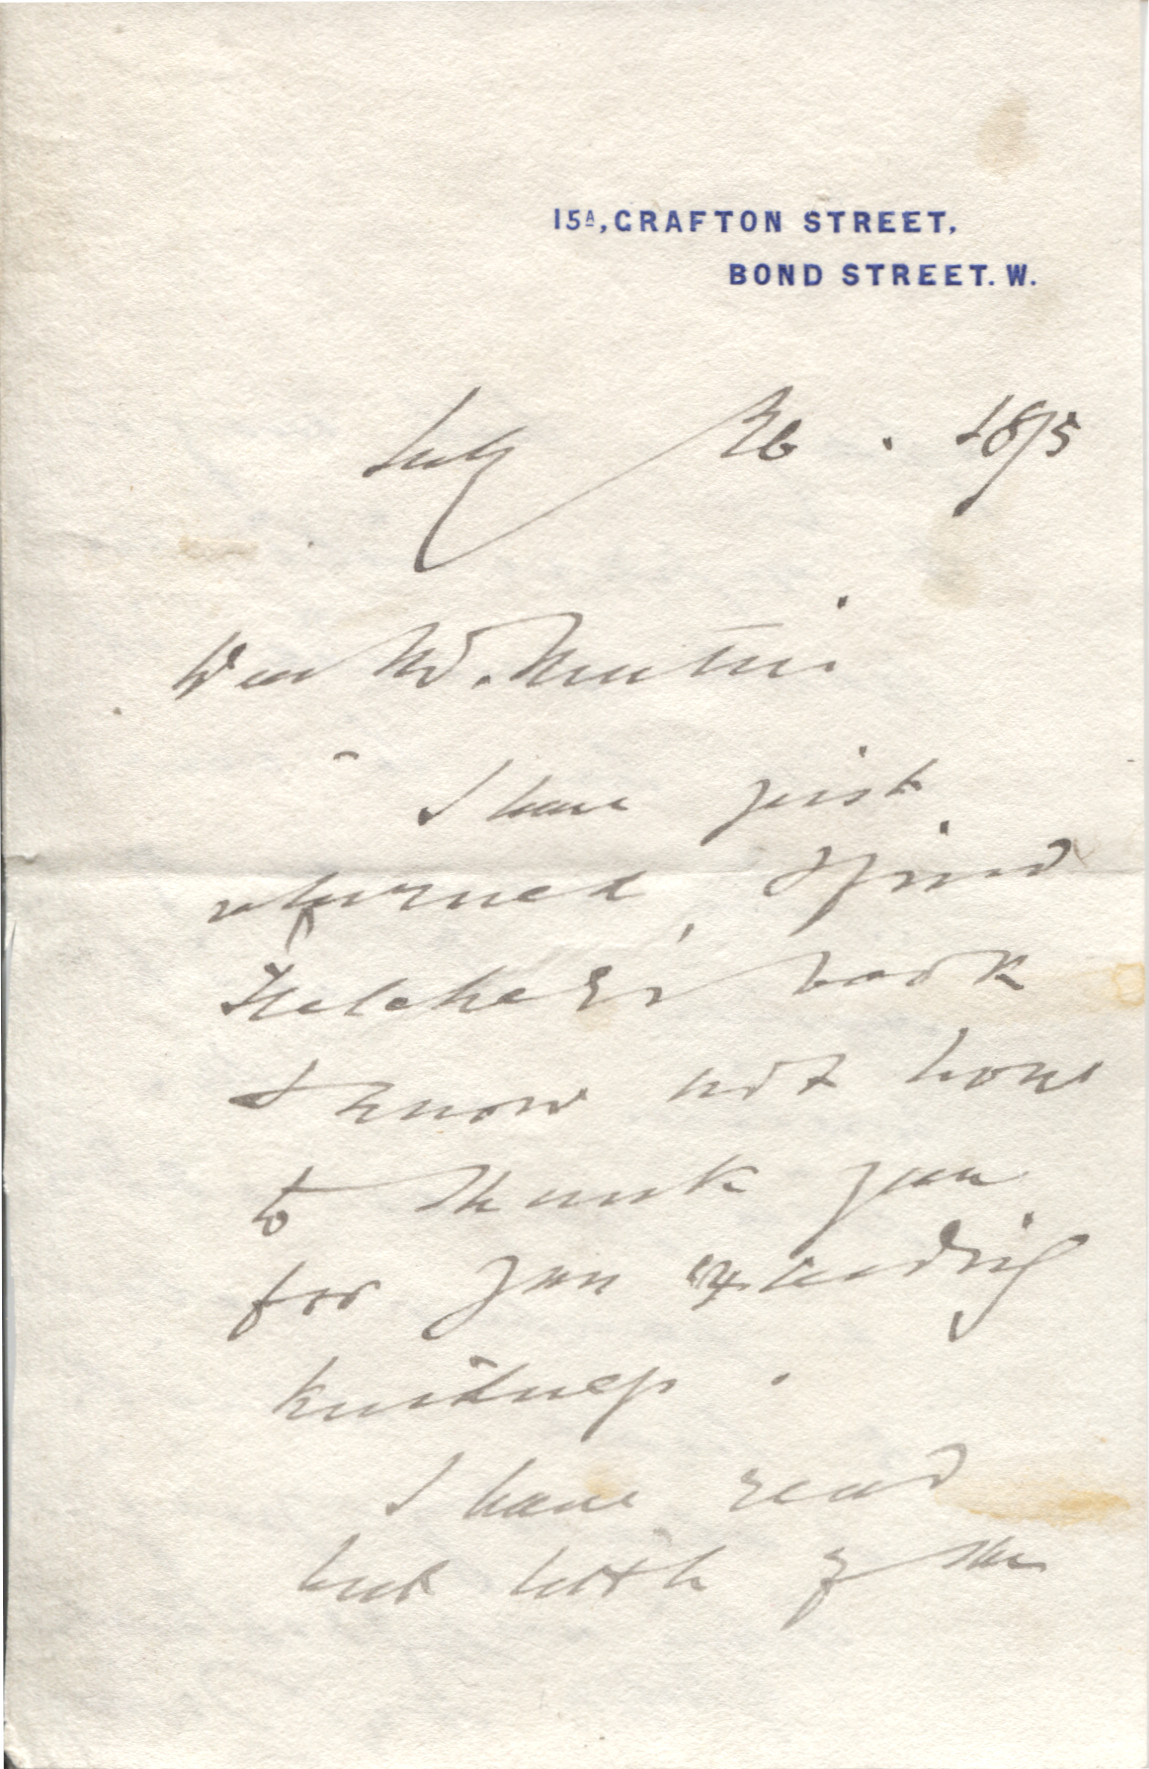 15A, GRAFTON STREET,
BOND STREET. W.
July 26. 1875
Dear Mr. Martin
I have just
returned, & find
book
I know not how
to thank you
for your exceeding
kindness.
I have read
but little of the